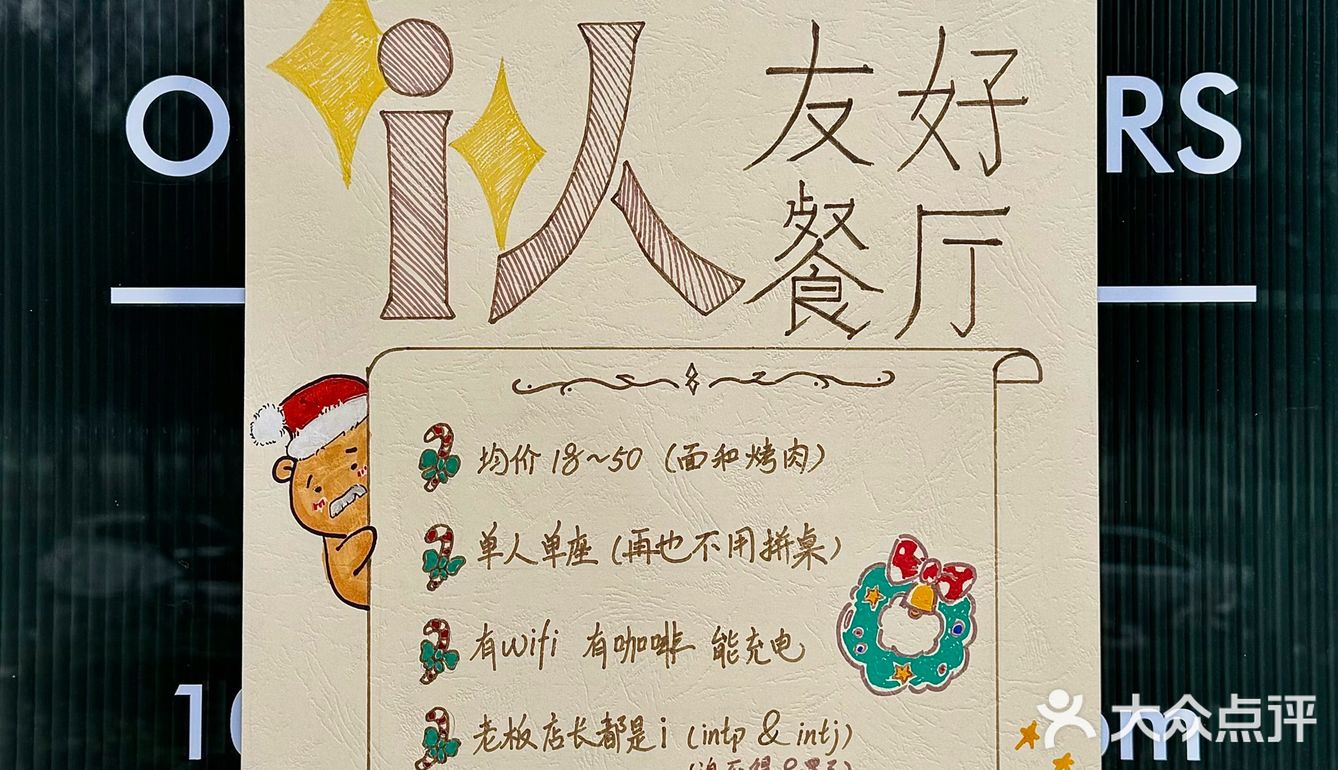 i人
友好
餐厅
O RS
均价 18~50 (面和烤肉)
单人单座 (再也不用拼桌)
有wifi 有咖啡 能充电
10 pm
老板店长都是i (intp & intj)
大众点评